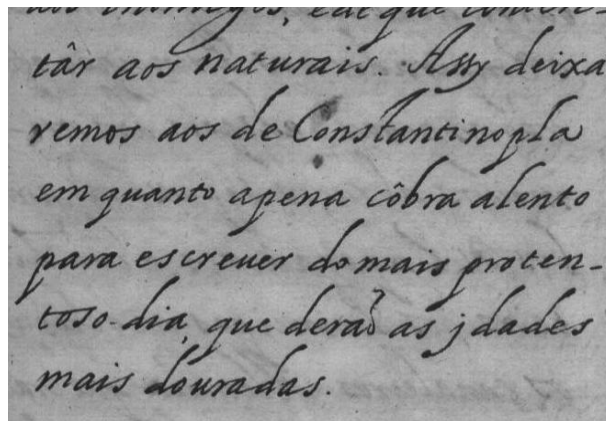 aos inimigos, eat que conten-
târ aos naturais. Assy deixa
remos aos de Constantinopla
em quanto apena côbra alento
para escreuer do mais proten-
toso dia, que deraõ as jdades
mais douradas.